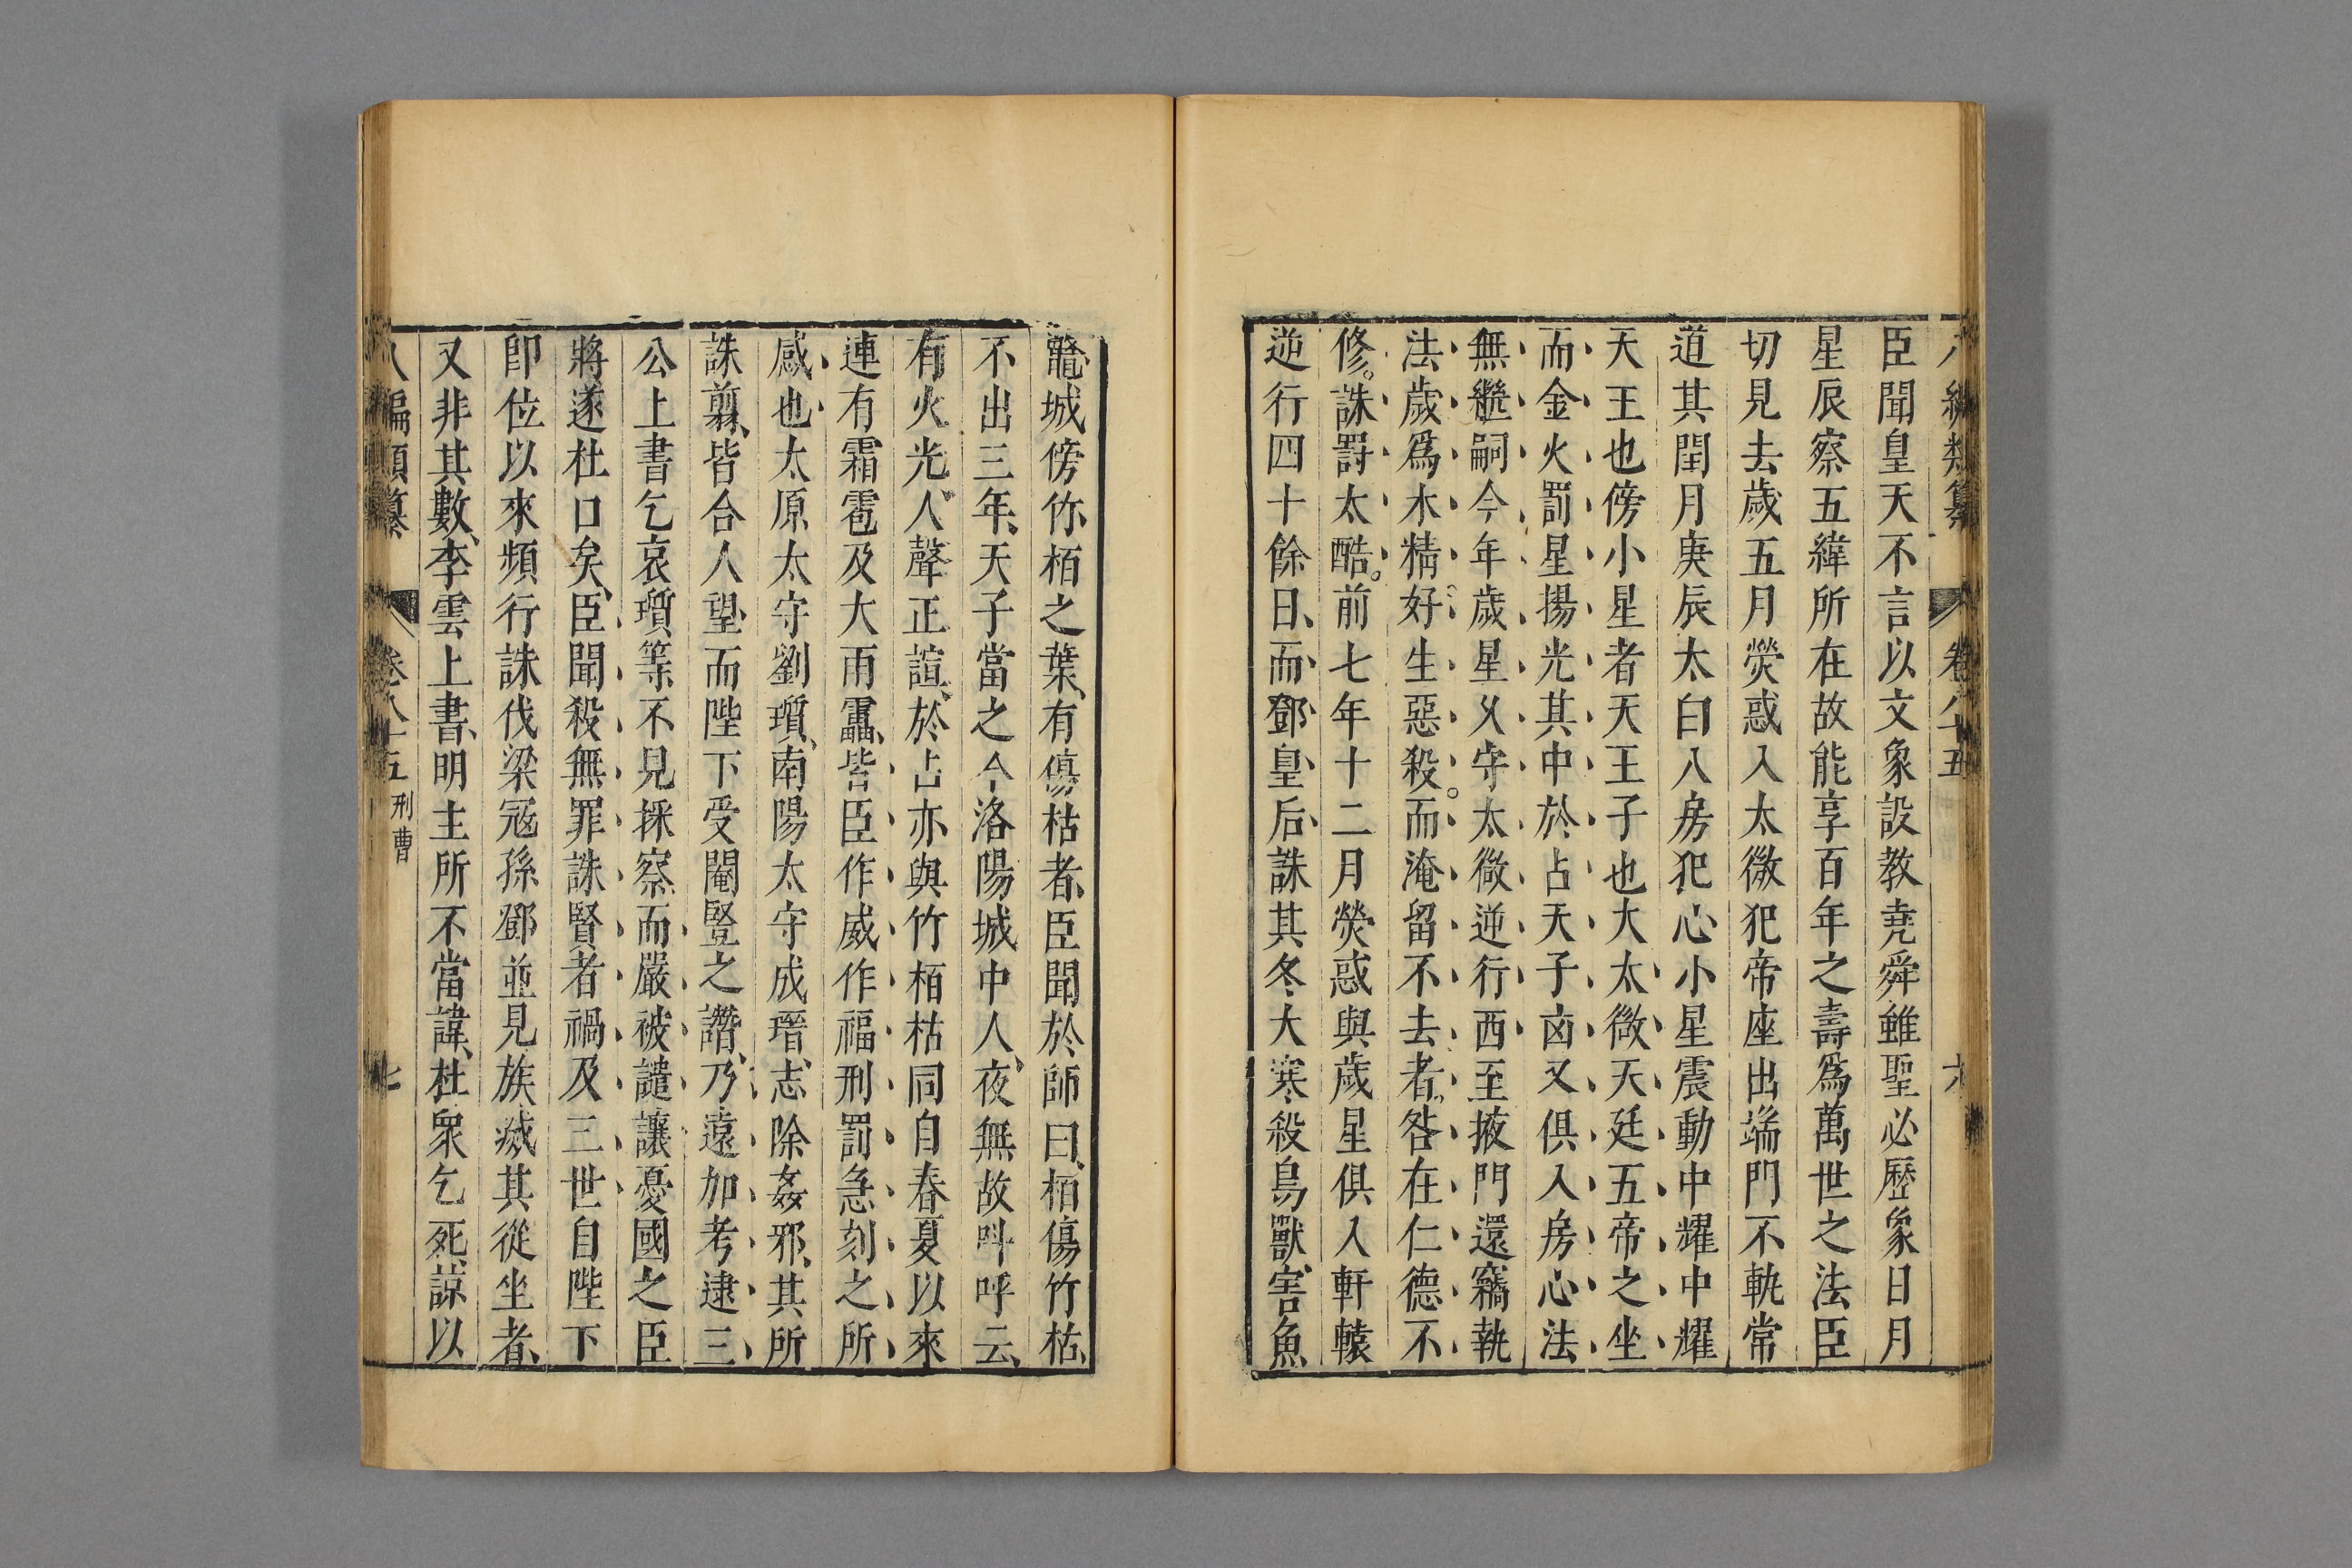 八編類纂 卷八十五 六
臣聞皇天不言以文象設教堯舜雖聖必歷象日月
星辰察五緯所在故能享百年之壽爲萬世之法臣
切見去歲五月熒惑入太微犯帝座出端門不軌常
道其閏月庚辰太白入房犯心小星震動中耀中耀
天王也傍小星者天王子也大太微天廷五帝之坐
而金火罰星揚光其中於占天子凶又俱入房心法
無繼嗣今年歲星乆守太微逆行西至掖門還竊執
法歲爲木精好生惡殺。而淹留不去者咎在仁德不
修。誅罸太酷。前七年十二月熒惑與歲星俱入軒轅
逆行四十餘日、而鄧皇后誅其冬大寒殺鳥獸、害魚
鼈、城傍竹栢之葉、有傷枯者、臣聞於師曰、栢傷竹枯、
不出三年、天子當之今洛陽城中人、夜無故呌呼云、
有火光、人聲正諠、於占亦與竹栢枯同自春夏以來
連有霜雹及大雨靁、皆臣作威作福刑罰急刻之所
感也太原太守劉瓆、南陽太守成瑨、志除姦邪、其所
誅翦、皆合人望、而陛下受閹豎之譖、乃遠加考逮三
公上書乞哀瓆等不見採察、而嚴被譴讓憂國之臣
將遂杜口矣、臣聞殺無罪誅賢者禍及三世自陛下
卽位以來頻行誅伐梁冦孫鄧並見族滅其從坐者、
又非其數、李雲上書、明主所不當諱、杜衆乞死、諒以
八編類纂 卷八十五 刑曹 七